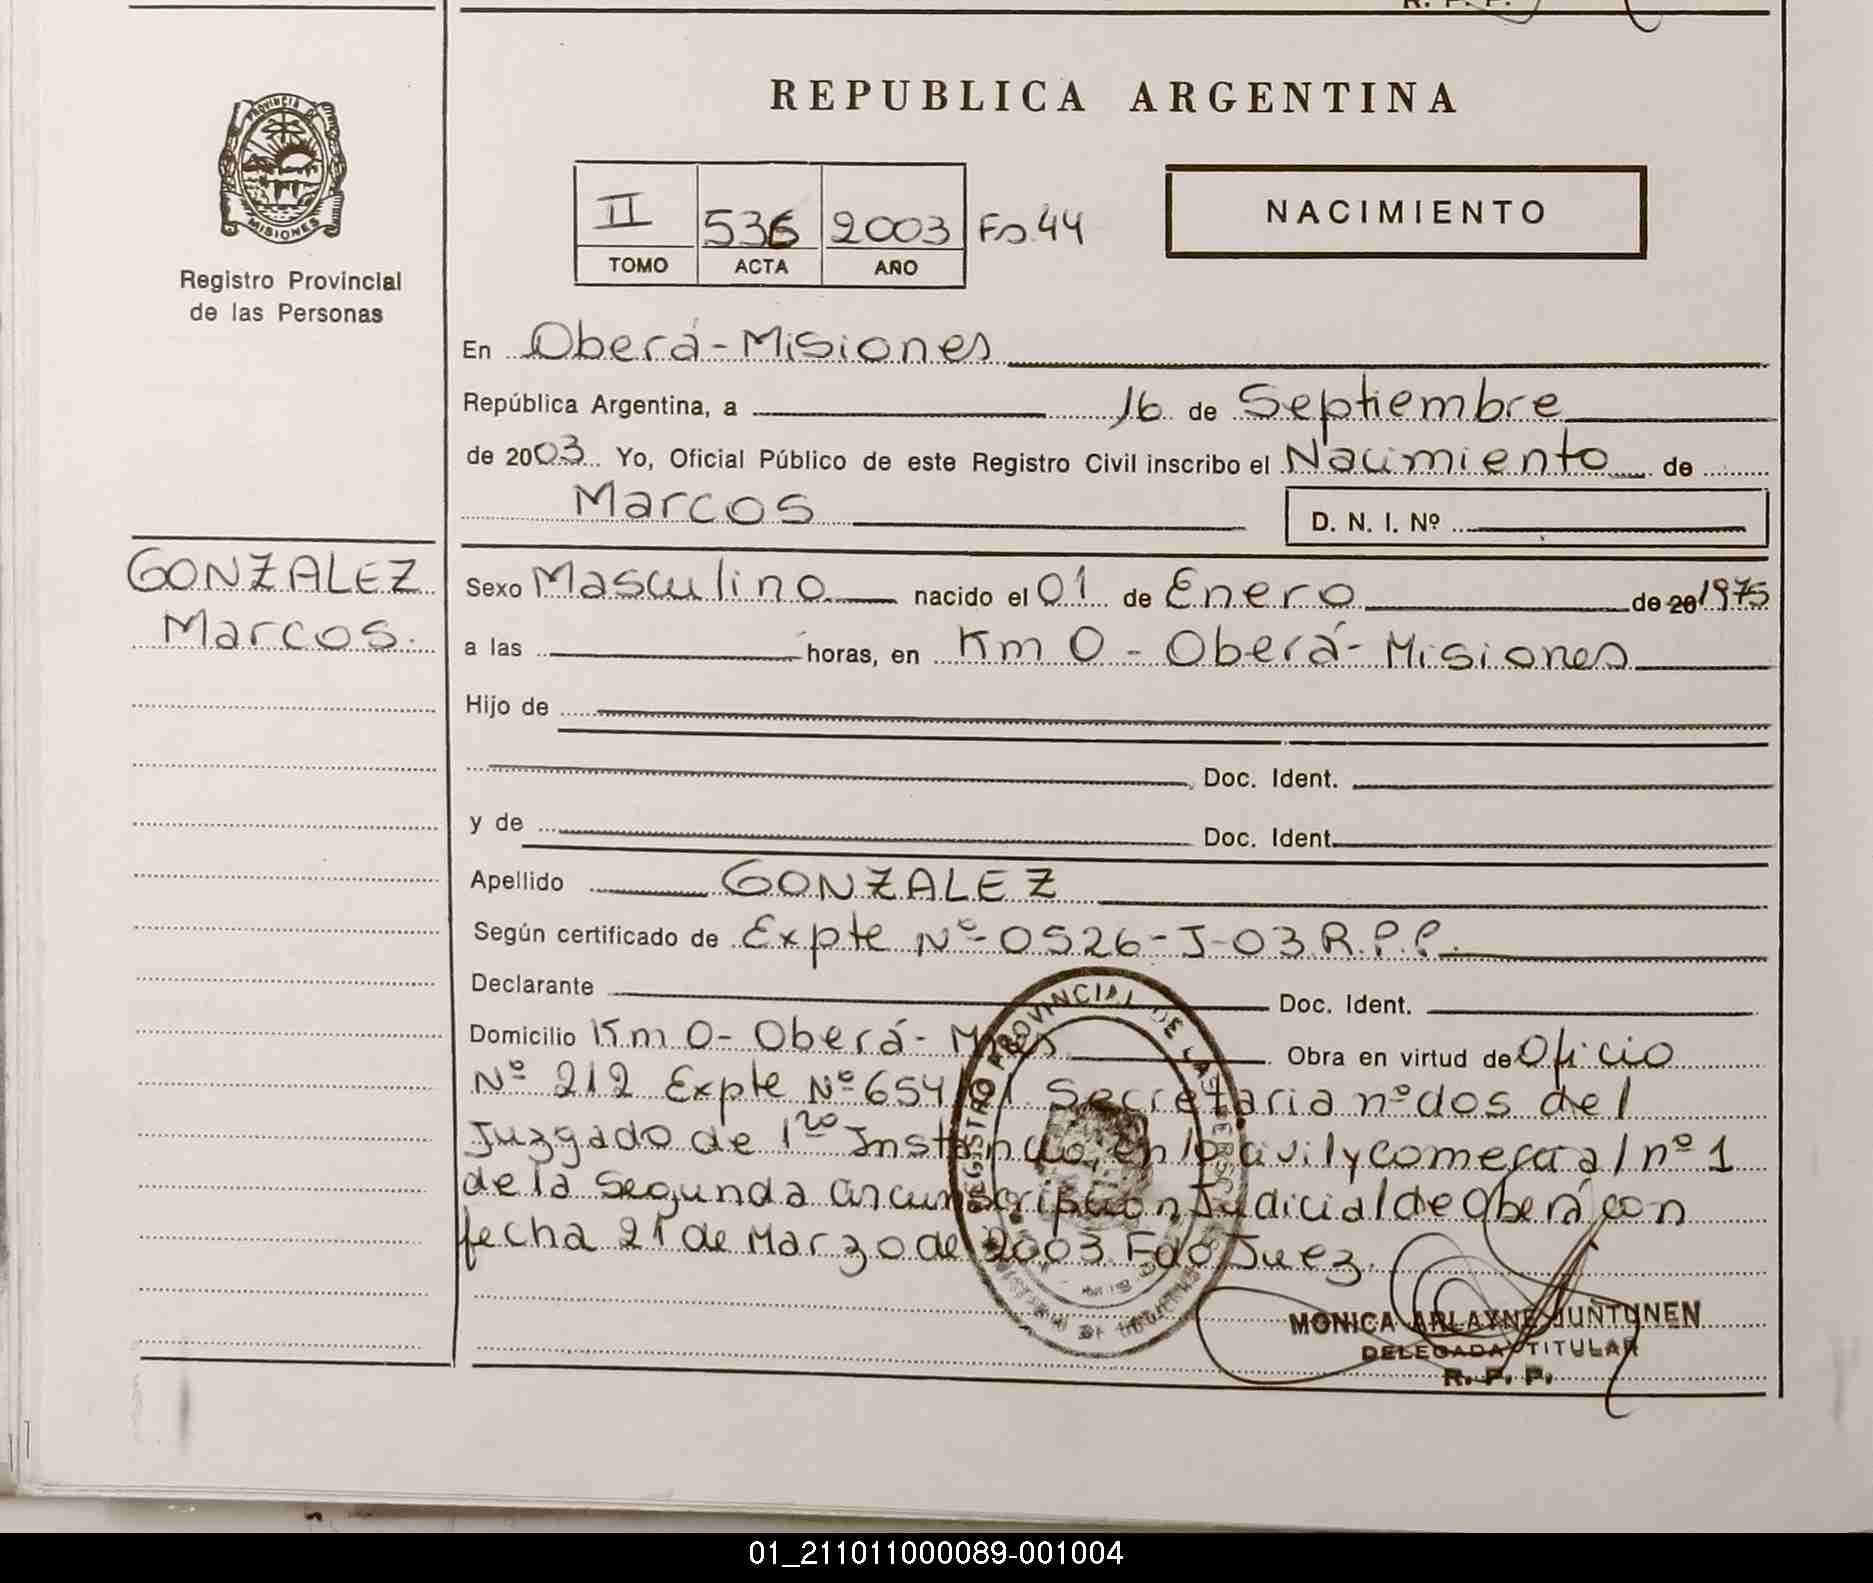 R. P. P.
REPUBLICA ARGENTINA
PROVINCIA DE
MISIONES
Registro Provincial
de las Personas
II 536 2003 Fo 44
TOMO ACTA AÑO
NACIMIENTO
En Oberá-Misiones
República Argentina, a 16 de Septiembre
de 2003 Yo, Oficial Público de este Registro Civil inscribo el Nacimiento de
Marcos
D. N. I. Nº
GONZALEZ
Marcos.
Sexo Masculino nacido el 01 de Enero de 20 1975
a las horas, en Km 0 - Oberá - Misiones
Hijo de
Doc. Ident.
y de Doc. Ident.
Apellido GONZALEZ
Según certificado de Expte Nº 0526-J-03 R.P.P.
Declarante Doc. Ident.
Domicilio Km 0- Oberá- Mnes Obra en virtud de Oficio
Nº 212 Expte Nº 654/01 Secretaria nº dos del
Juzgado de 1ra Instancia, en lo civil y comercial nº 1
de la Segunda circunscripcion Judicial de Oberá con
fecha 21 de Marzo de 2003. Fdo Juez.
REGISTRO PROVINCIAL DE LAS PERSONAS
MONICA ARLAYNE JUÑTUNEN
DELEGADA TITULAR
R. P. P.
01_211011000089-001004